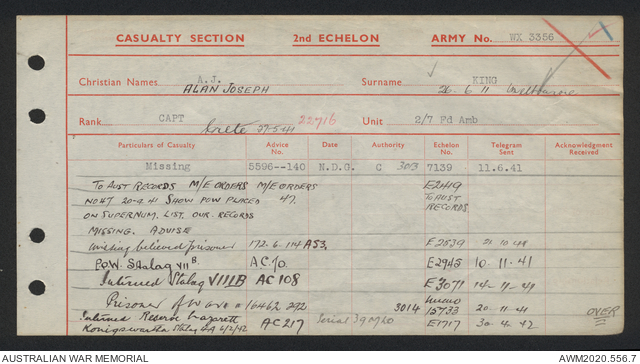 CASUALTY SECTION 2nd ECHELON ARMY No. WX 3356
Christian Names A.J. Surname KING
ALAN JOSEPH 26.6.11 Melbourne
Rank CAPT 22716 Unit 2/7 Fd Amb
Crete 27-5-41
Particulars of Casualty Advice No. Date Authority Echelon No. Telegram Sent Acknowledgment Received
Missing 5596--140 N.D.G. C 303 7139 11.6.41
TO AUST RECORDS M/E ORDERS M/E ORDERS E2419
NO 47 20-9-41 SHOW POW PLACED 47. TO AUST
ON SUPERNUM. LIST. OUR RECORDS RECORDS
MISSING. ADVISE
Missing believed prisoner 172.6.114 A53. E2539 21.10.41
P.O.W. Stalag VII B. AC70 E2945 10.11.41
Interned Stalag VIIIB AC108 E3071 14.11.41
Prisoner of War No 16462 292 3014 memo 15733 20.11.41
Interned Reserve Lazarett OVER
Konigswartha Stalag 4A 6/2/42 AC217 Serial 39 E1717 30.4.42
AUSTRALIAN WAR MEMORIAL AWM2020.556.7